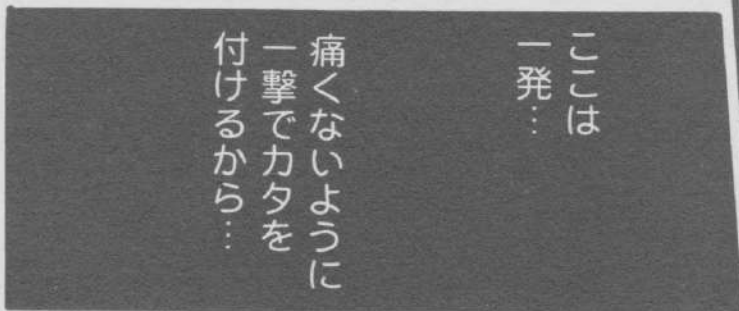 ここは
一発…
痛くないように
一撃でカタを
付けるから…